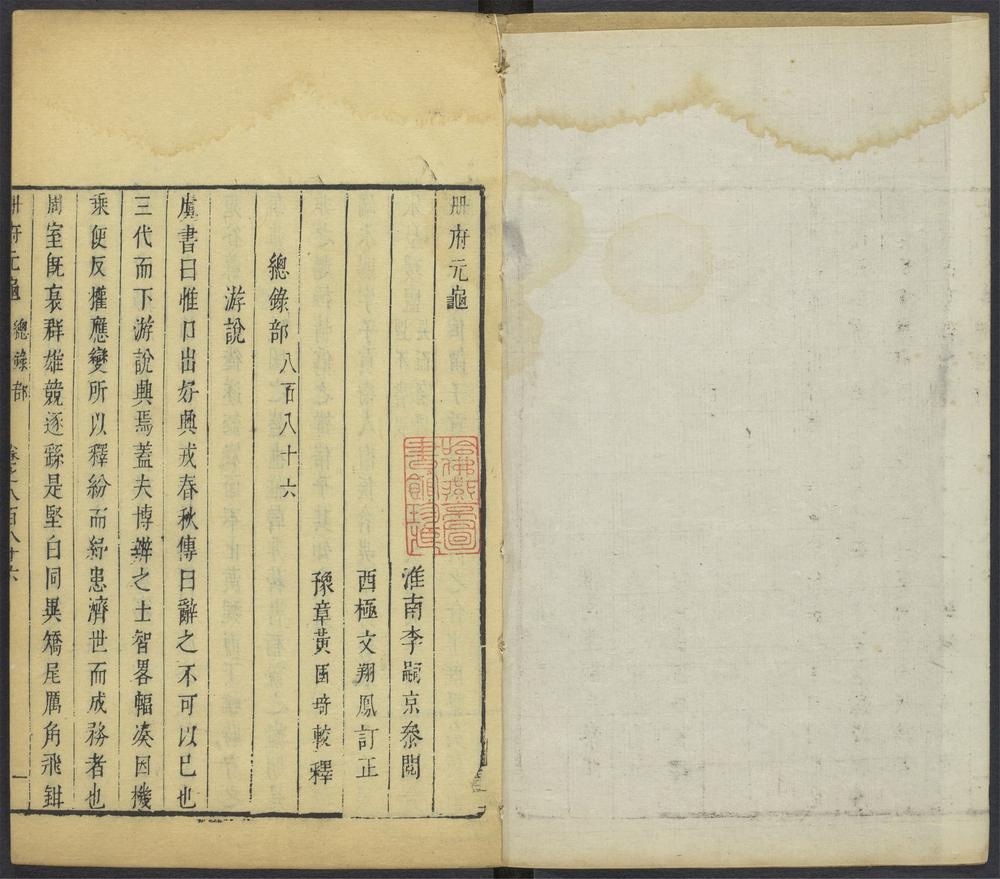 册府元龜
淮南李嗣京叅閲
西極文翔鳳訂正
豫章黃國琦較釋
總錄部八百八十六
游說
虞書曰惟口出好興戎春秋傳曰辭之不可以已也
三代而下游說興焉蓋夫博辨之士智畧輻湊因機
乘便反權應變所以釋紛而紓患濟世而成務者也
周室旣衰群雄競逐繇是堅白同異矯尾厲角飛鉗
册府元龜 總錄部 卷之八百八十六 一
哈佛燕京圖書館珍藏